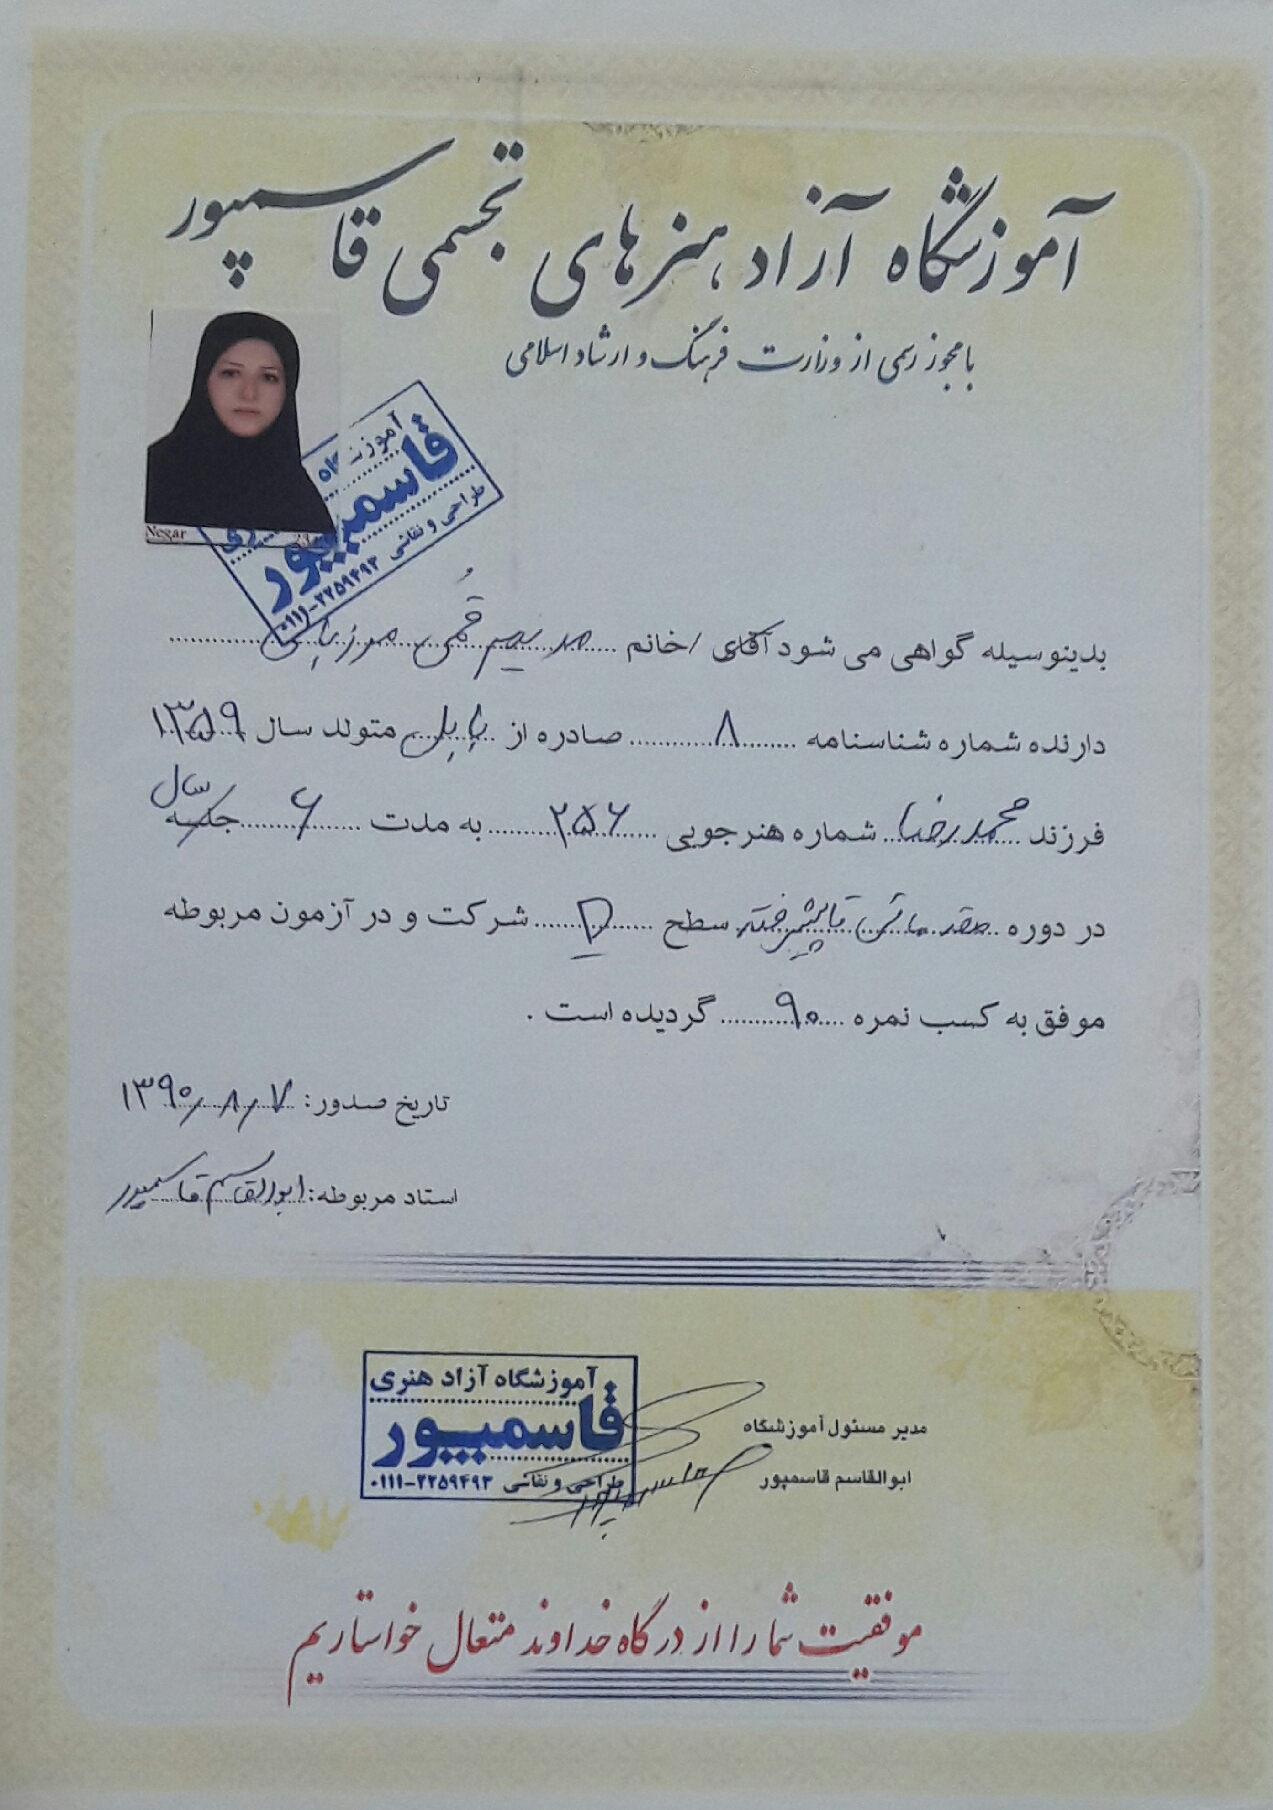 آموزشگاه آزاد هنرهای تجسمی قاسمپور
با مجوز رسمی از وزارت فرهنگ و ارشاد اسلامی
Negar
آموزشگاه
قاسمپور
طراحی و نقاشی
۰۱۱۱-۲۲۵۹۴۹۳
بدینوسیله گواهی می شود آقای / خانم مریم قمی مرزبالی
دارنده شماره شناسنامه ۸ صادره از بابل متولد سال ۱۳۵۹
فرزند محمدرضا شماره هنرجویی ۲۵۶ به مدت ۶ جلسه سال
در دوره مقدماتی تا پیشرفته سطح D شرکت و در آزمون مربوطه
موفق به کسب نمره ۹۰ گردیده است .
تاریخ صدور: ۱۳۹۰/۸/۷
استاد مربوطه: ابوالقاسم قاسمپور
آموزشگاه آزاد هنری
قاسمپور
طراحی و نقاشی ۰۱۱۱-۲۲۵۹۴۹۳
مدیر مسئول آموزشگاه
ابوالقاسم قاسمپور
موفقیت شما را از درگاه خداوند متعال خواستاریم